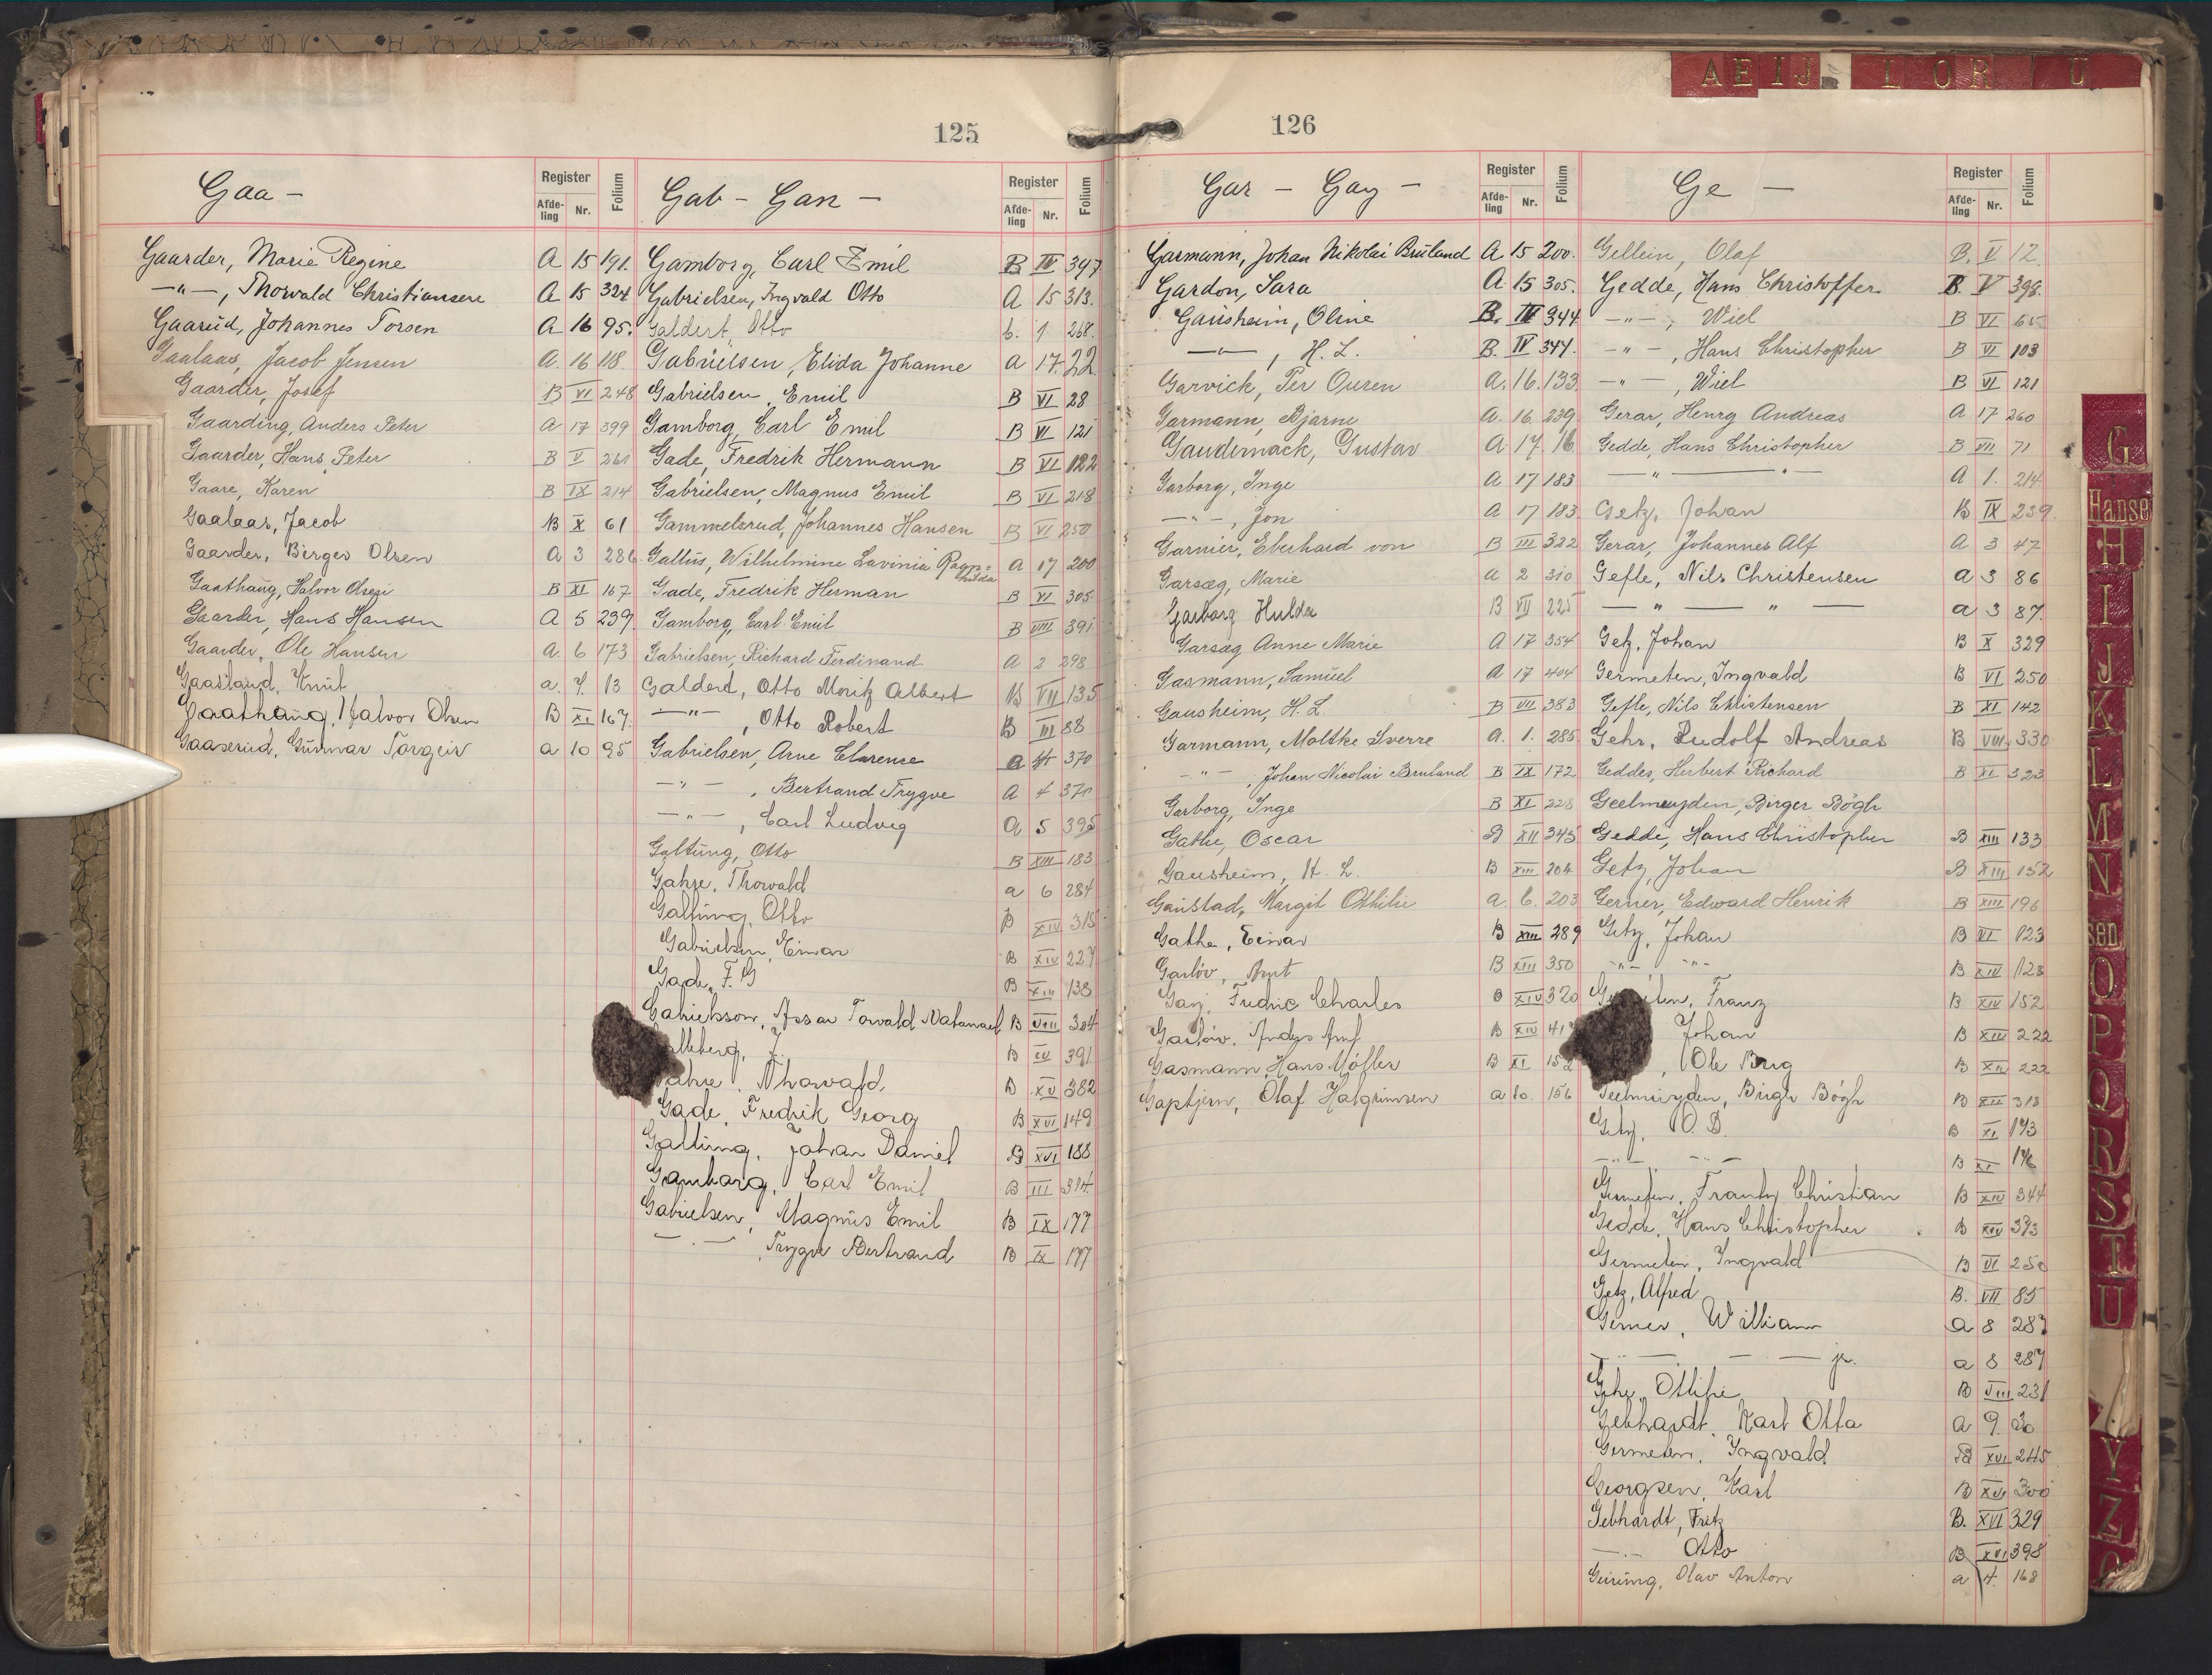 125
Gaa –
Register
Afde-
ling
Nr.
Folium
Gaarder, Marie Regine A 15 191.
–"–, Thorvald Christiansen A 15 324
Gaarud, Johannes Torsen A 16 95.
Gaalaas, Jacob Jensen A. 16 118.
Gaarder, Josef B VI 248
Gaarding, Anders Peter A 17 399
Gaarder, Hans Peter B V 261
Gaare, Karen B IX 214
Gaalaas, Jacob B X 61
Gaarder, Birger Olsen A 3 286
Gaathaug, Halvor Olsen B XI 167
Gaarder, Hans Hansen A 5 239
Gaarder, Ole Hansen A. 6 173
Gaasland, Knut a. 7. 13
Gaathaug, Halvor Olsen B XI 167.
Gaaserud, Gunnar Torgeir a 10 95
Gab – Gan –
Register
Afde-
ling
Nr.
Folium
Gamborg, Carl Emil B IV 397
Gabrielsen, Ingvald Otto A 15 313.
Galdert, Otto b. 1 268.
Gabrielsen, Elida Johanne a 17. 22
Gabrielsen, Emil B VI 28
Gamborg, Carl Emil B VI 121
Gade, Fredrik Hermann B VI 122
Gabrielsen, Magnus Emil B VI 218
Gammelsrud, Johannes Hansen B VI 250
Gallus, Wilhelmine Lavinia Ragn=
hilda A 17 200
Gade, Fredrik Herman B VI 305
Gamborg, Carl Emil B VIII 391
Gabrielsen, Richard Ferdinand A 2 298
Galdert, Otto Moritz Albert B VII 135
–"–, Otto Robert B III 88
Gabrielsen, Arne Clarence a 4 370
–"–, Bertrand Trygve A 4 370
–"–, Carl Ludvig a 5 395
Galtung, Otto B XIII 183
Gahre, Thorvald a 6 284
Galtung, Otto B XIV 315
Gabrielsen, Einar B XIV 227
Gade, F. G B XIII 138
Gabrielsson, Assar Torvald Natanael B VIII 304
J. B IV 391
Thorvald. B XV 382
Gade, Fredrik Georg B XVI 149
Galtung, Johan Daniel B XVI 188
Gamborg, Carl Emil B III 314
Gabrielsen, Magnus Emil B IX 177
–"–, Trygve Bertrand B IX 177
126
Gar – Gay –
Register
Afde-
ling
Nr.
Folium
Garmann, Johan Nikolai Bruland A 15 200.
Gardon, Sara A. 15 305.
Gausheim, Oline B. IV 344
–"–, H. L. B. IV 344.
Garvick, Per Ouren A. 16. 133
Garmann, Bjarne A. 16 239
Gaudernack, Gustav A 17. 16
Garborg, Inge A 17 183
–"–, Jon A 17 183
Garnier, Eberhard von B III 322
Garsæg, Marie a 2 310
Garborg Hulda B VII 225
Garsæg Anne Marie A 17 354
Gasmann, Samuel A 17 404
Gausheim, H. L. B VIII 383
Garmann, Moltke Sverre A. 1. 285
–"–, Johan Nicolai Bruland B IX 172
Garborg, Inge B XI 228
Gathe, Oscar B XII 345
Gausheim, H. L. B XIII 204
Gaustad, Margit Othilie a. 6. 203
Gathe, Einar B XIII 289
Garlöv, B XIII 350
Gay, Fredric Charles B XIV 320
Garlöv, B XIV
Gasmann, Hans Möller B XI 152
Gaptjern, Olaf Halgrimsen a 10. 156
Ge –
Register
Afde-
ling
Nr.
Folium
Gellein, Olaf B. V 12.
Gedde, Hans Christoffer B V 398.
–"–, Wiel B VI 65
–"–, Hans Christopher B VI 103
–"–, Wiel B VI 121
Gerar, Henry Andreas A 17 260
Gedde, Hans Christopher B VII 71
–"– "– A 1. 214
Getz, Johan B IX 239
Gerar, Johannes Alf A 3 47
Gefle, Nils Christensen a 3 86
– " – " – a 3 87.
Getz, Johan B X 329
Germeten, Ingvald B VI 250
Gefle, Nils Christensen B XI 142
Gehr, Rudolf Andreas B VIII 330
Geddes, Herbert Richard B XI 323
Geelmuyden, Birger Bögh
Gedde, Hans Christopher B XIII 133
Getz, Johan B XIII 152
Gerner, Edward Henrik B XIII 196
Getz, Johan B VI 123
–"– –"– B XIV 128
Franz B XIV 152
Johan B XIII 222
, Ole Brig B XII 222
Geelmuyden, Birger Bögh B XII 318
Getz, O. B. B XI 193
–"– –"– B XI 196
Germeten, Frantz Christian B XIV 344
Gedde, Hans Christopher B XIV 393
Germeten, Ingvald B VI 250
Getz, Alfred B. VII 85
Gerner, William a 8 287
– " – – " – jr. a 8 287
Gehr, Otilie B VIII 231
Gebhardt, Karl Otto a 9. 20
Germeten, Ingvald B XVI 245
Georgsen, Karl B XVI 300
Gebhardt, Fritz B. XVI 329
–"– Otto B XVI 398
Geirung, Olav Anton a 4. 168
A E I J L O R U
G
Hanse
H
I
J
K
L
M
N
sen
O
P
Q
R
S
T
U
Y
Z